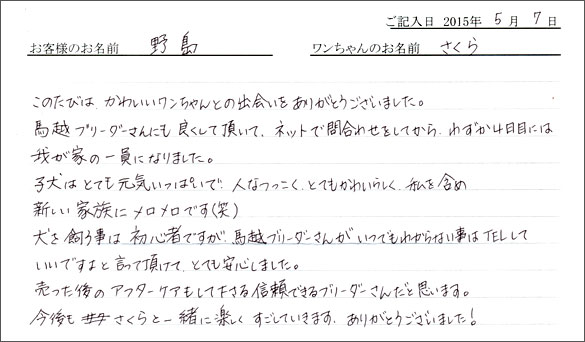 ご記入日 2015年 5月 7日
お客様のお名前 野島 ワンちゃんのお名前 さくら
このたびは、かわいいワンちゃんとの出会いをありがとうございました。
馬越ブリーダーさんにも良くして頂いて、ネットで問合わせをしてから、わずか4日目には
我が家の一員になりました。
子犬はとても元気いっぱいで、人なつっこく、とてもかわいらしく、私を含め
新しい家族にメロメロです(笑)
犬を飼う事は初心者ですが、馬越ブリーダーさんがいつでもわからない事はTELして
いいですよと言って頂けて、とても安心しました。
売った後のアフターケアもして下さる信頼できるブリーダーさんだと思います。
今後も さくらと一緒に楽しくすごしていきます。ありがとうございました!